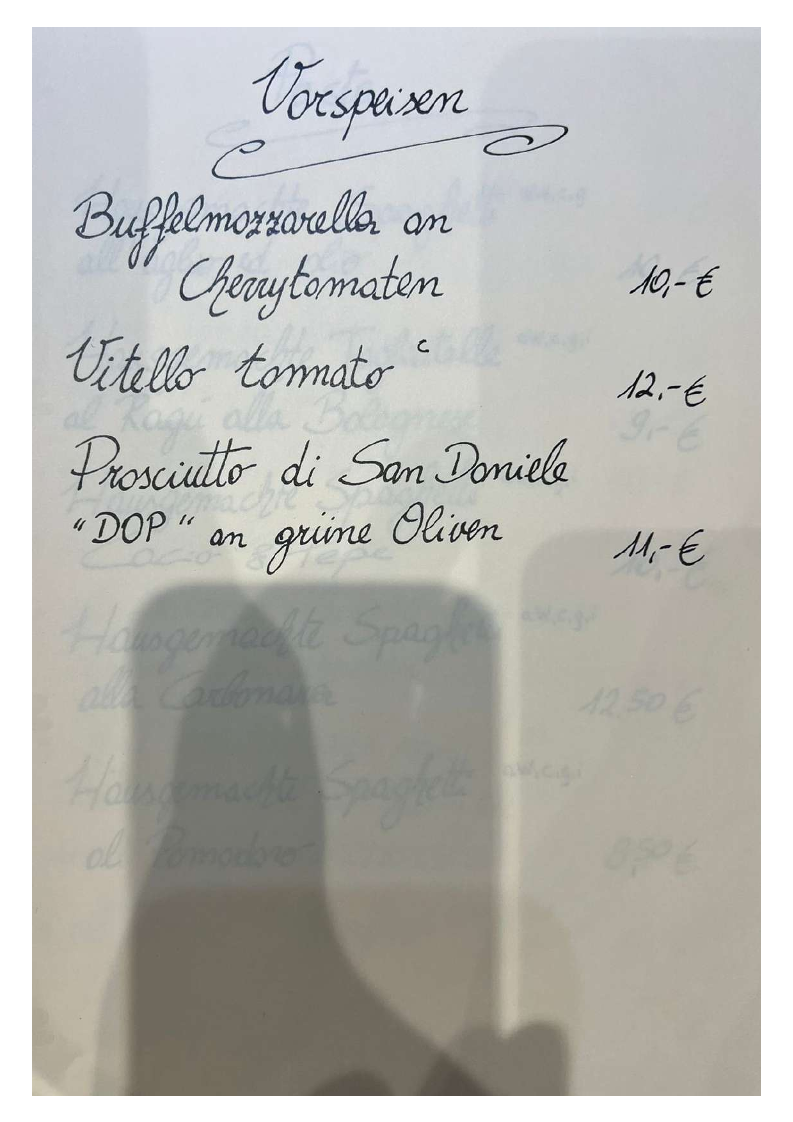 Vorspeisen
Buffelmozzarella an
Cherrytomaten 10,- €
Vitello tonnato c
12,- €
Prosciutto di San Daniele
"DOP" an grüne Oliven
11,- €
Hausgemachte Spaghetti
al Ragú alla Bolognese 9,- €
Hausgemachte Spaghetti
Cacio & Pepe
Hausgemachte Spaghetti
alla Carbonara 12.50 €
Hausgemachte Spaghetti
al Pomodoro 8,50 €